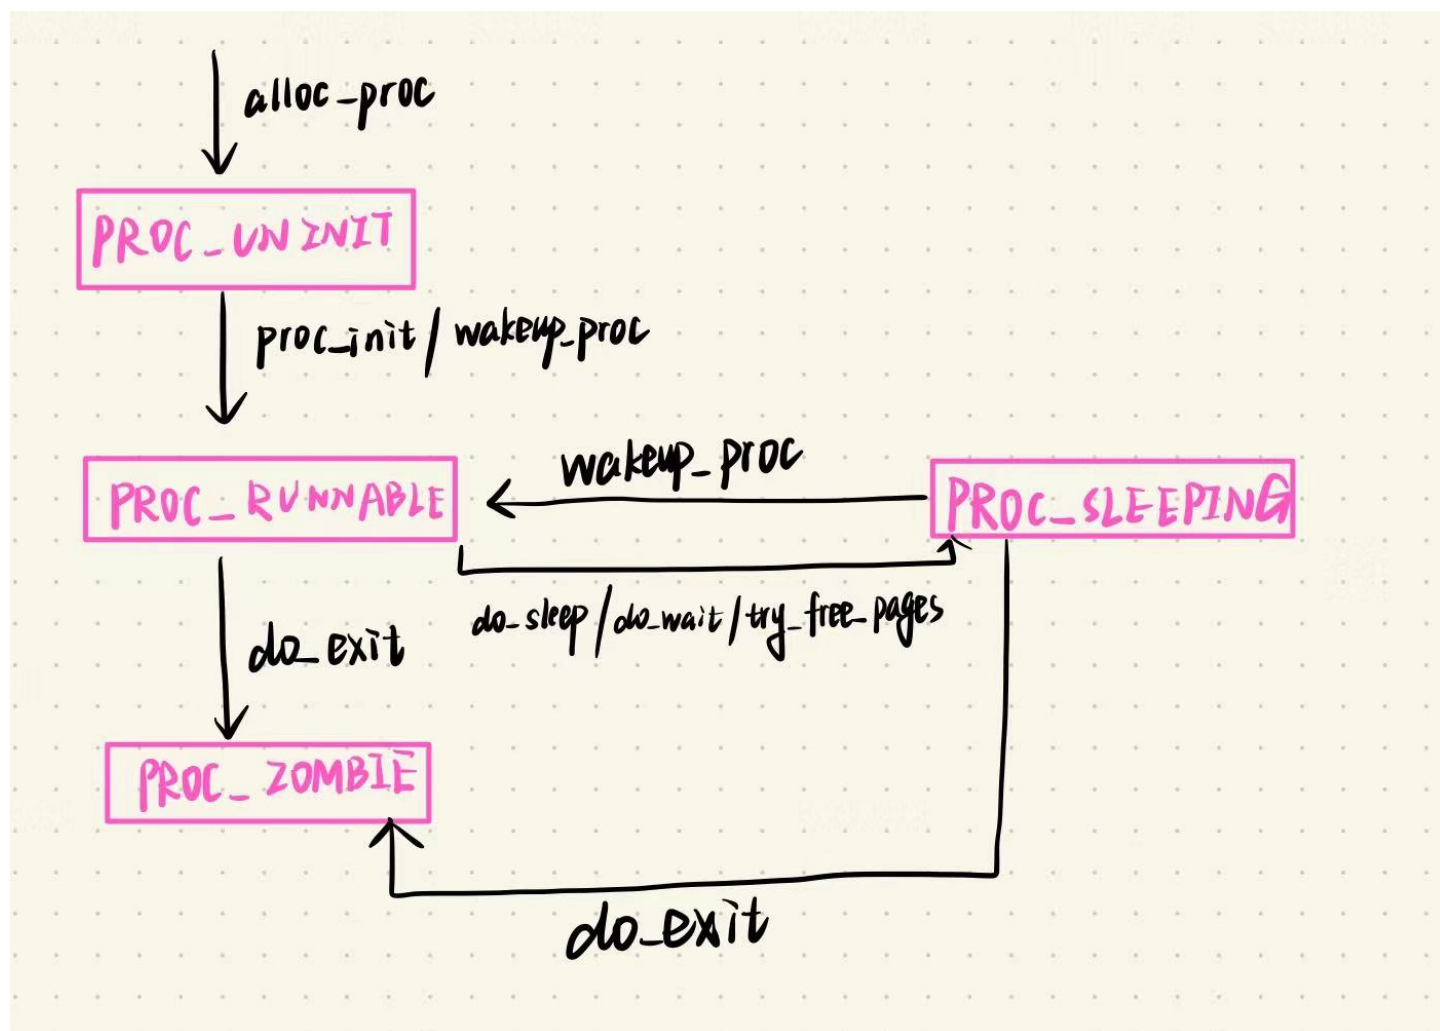 alloc_proc
PROC_UNINIT
proc_init / wakeup_proc
wakeup_proc
PROC_RUNNABLE
PROC_SLEEPING
do_sleep / do_wait / try_free_pages
do_exit
PROC_ZOMBIE
do_exit